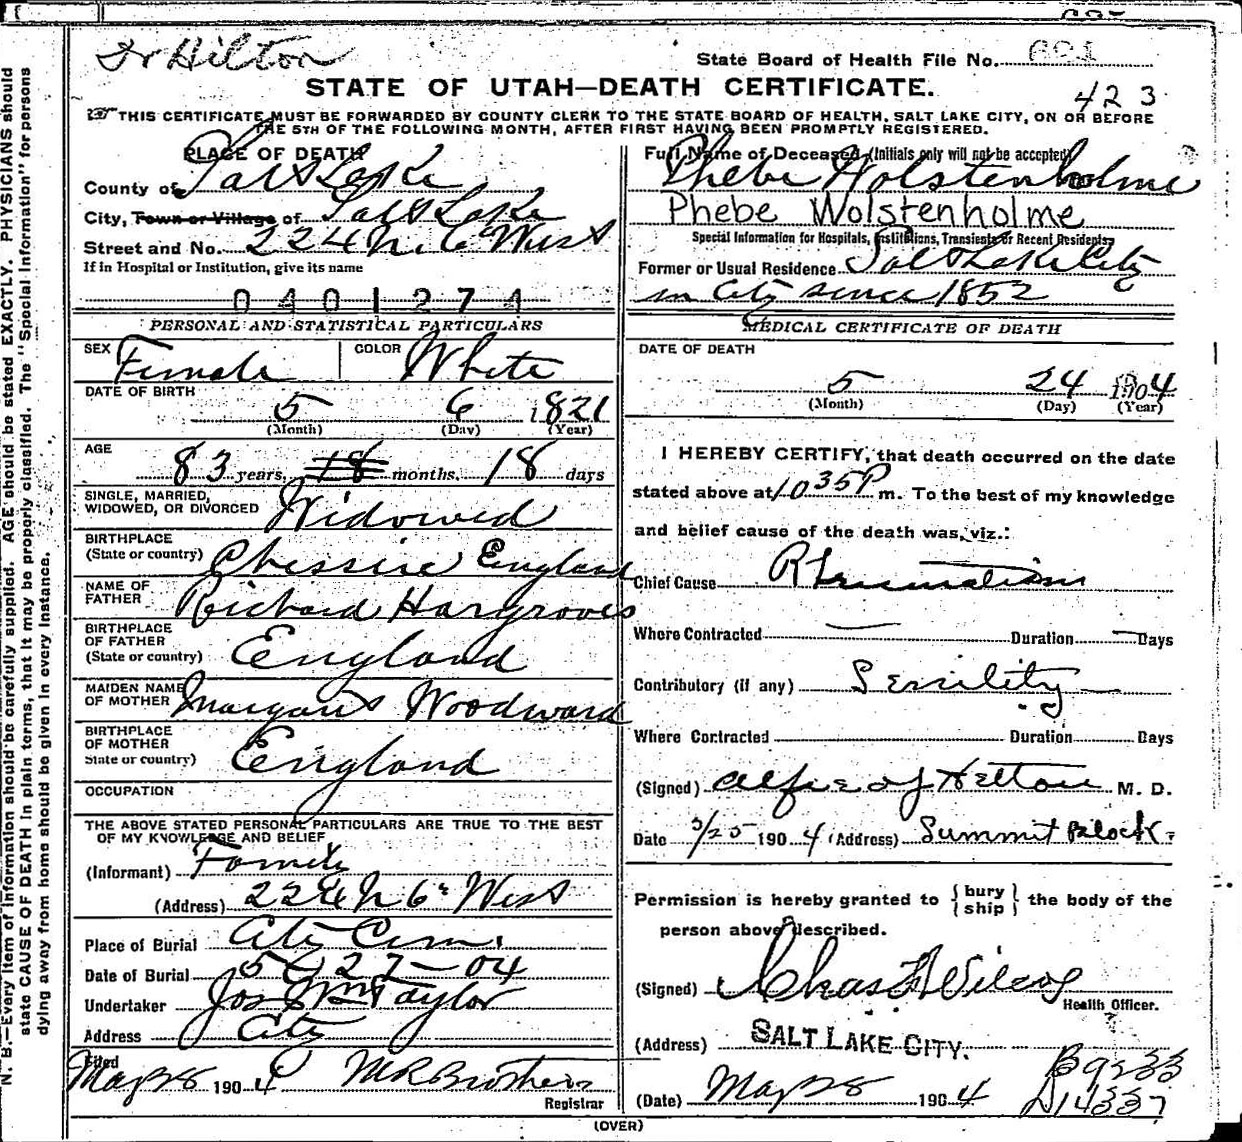 Dr Hilton
State Board of Health File No.
STATE OF UTAH—DEATH CERTIFICATE.
423
THIS CERTIFICATE MUST BE FORWARDED BY COUNTY CLERK TO THE STATE BOARD OF HEALTH, SALT LAKE CITY, ON OR BEFORE
THE 5TH OF THE FOLLOWING MONTH, AFTER FIRST HAVING BEEN PROMPTLY REGISTERED.
N. B.—Every item of information should be carefully supplied. AGE should be stated EXACTLY. PHYSICIANS should
state CAUSE OF DEATH in plain terms, that it may be properly classified. The "Special Information" for persons
dying away from home should be given in every instance.
PLACE OF DEATH
County of Salt Lake
City, Town or Village of Salt Lake
Street and No. 224 N. 6 West
If in Hospital or Institution, give its name
0401274
PERSONAL AND STATISTICAL PARTICULARS
SEX Female COLOR White
DATE OF BIRTH
5 6 1821
(Month) (Day) (Year)
AGE
83 years, 18 months. 18 days
SINGLE, MARRIED,
WIDOWED, OR DIVORCED Widowed
BIRTHPLACE
(State or country) Chessire England
NAME OF
FATHER Richard Hargroves
BIRTHPLACE
OF FATHER
(State or country) England
MAIDEN NAME
OF MOTHER Margaret Woodward
BIRTHPLACE
OF MOTHER
State or country) England
OCCUPATION
THE ABOVE STATED PERSONAL PARTICULARS ARE TRUE TO THE BEST
OF MY KNOWLEDGE AND BELIEF
(Informant) Family
(Address) 224 N 6 West
Place of Burial City Cem.
Date of Burial 5 27-04
Undertaker Jos Wm Taylor
Address City
Filed
May 28 1904 M R Brothers
Registrar
Full Name of Deceased (Initials only will not be accepted)
Phebe Wolstenholme
Phebe Wolstenholme
Special Information for Hospitals, Institutions, Transients or Recent Residents
Former or Usual Residence Salt Lake City
in City since 1852
MEDICAL CERTIFICATE OF DEATH
DATE OF DEATH
5 24 1904
(Month) (Day) (Year)
I HEREBY CERTIFY, that death occurred on the date
stated above at 10 35 P m. To the best of my knowledge
and belief cause of the death was, viz.:
Chief Cause Rheumatism
Where Contracted — Duration — Days
Contributory (if any) Senility
Where Contracted Duration Days
(Signed) Hilton M. D.
Date 5/25 1904 (Address) Summit Block.
Permission is hereby granted to { bury
ship } the body of the
person above described.
(Signed) Chas F Wilcox
Health Officer.
(Address) SALT LAKE CITY.
(Date) May 28 1904
B 9233
D 14337
(OVER)